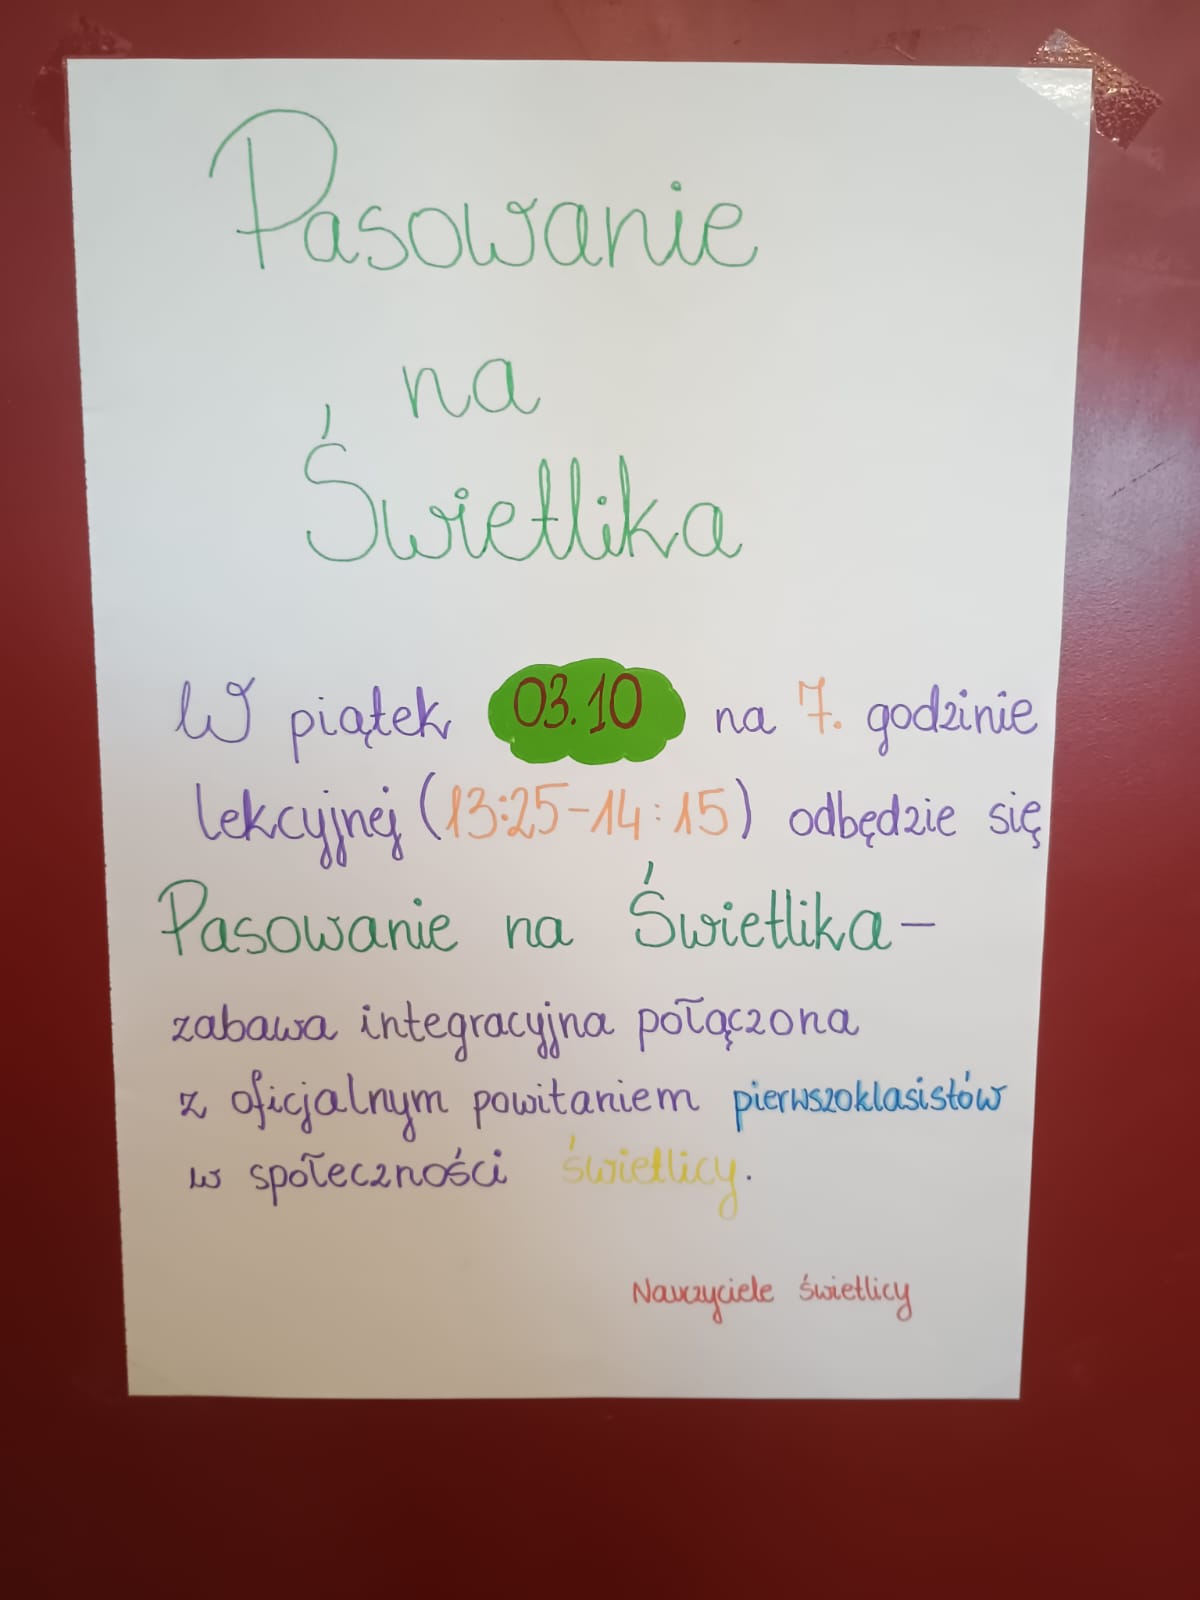 Pasowanie
na
Świetlika
W piątek 03.10 na 7. godzinie
lekcyjnej (13:25-14:15) odbędzie się
Pasowanie na Świetlika -
zabawa integracyjna połączona
z oficjalnym powitaniem pierwszoklasistów
w społeczności świetlicy.
Nauczyciele świetlicy